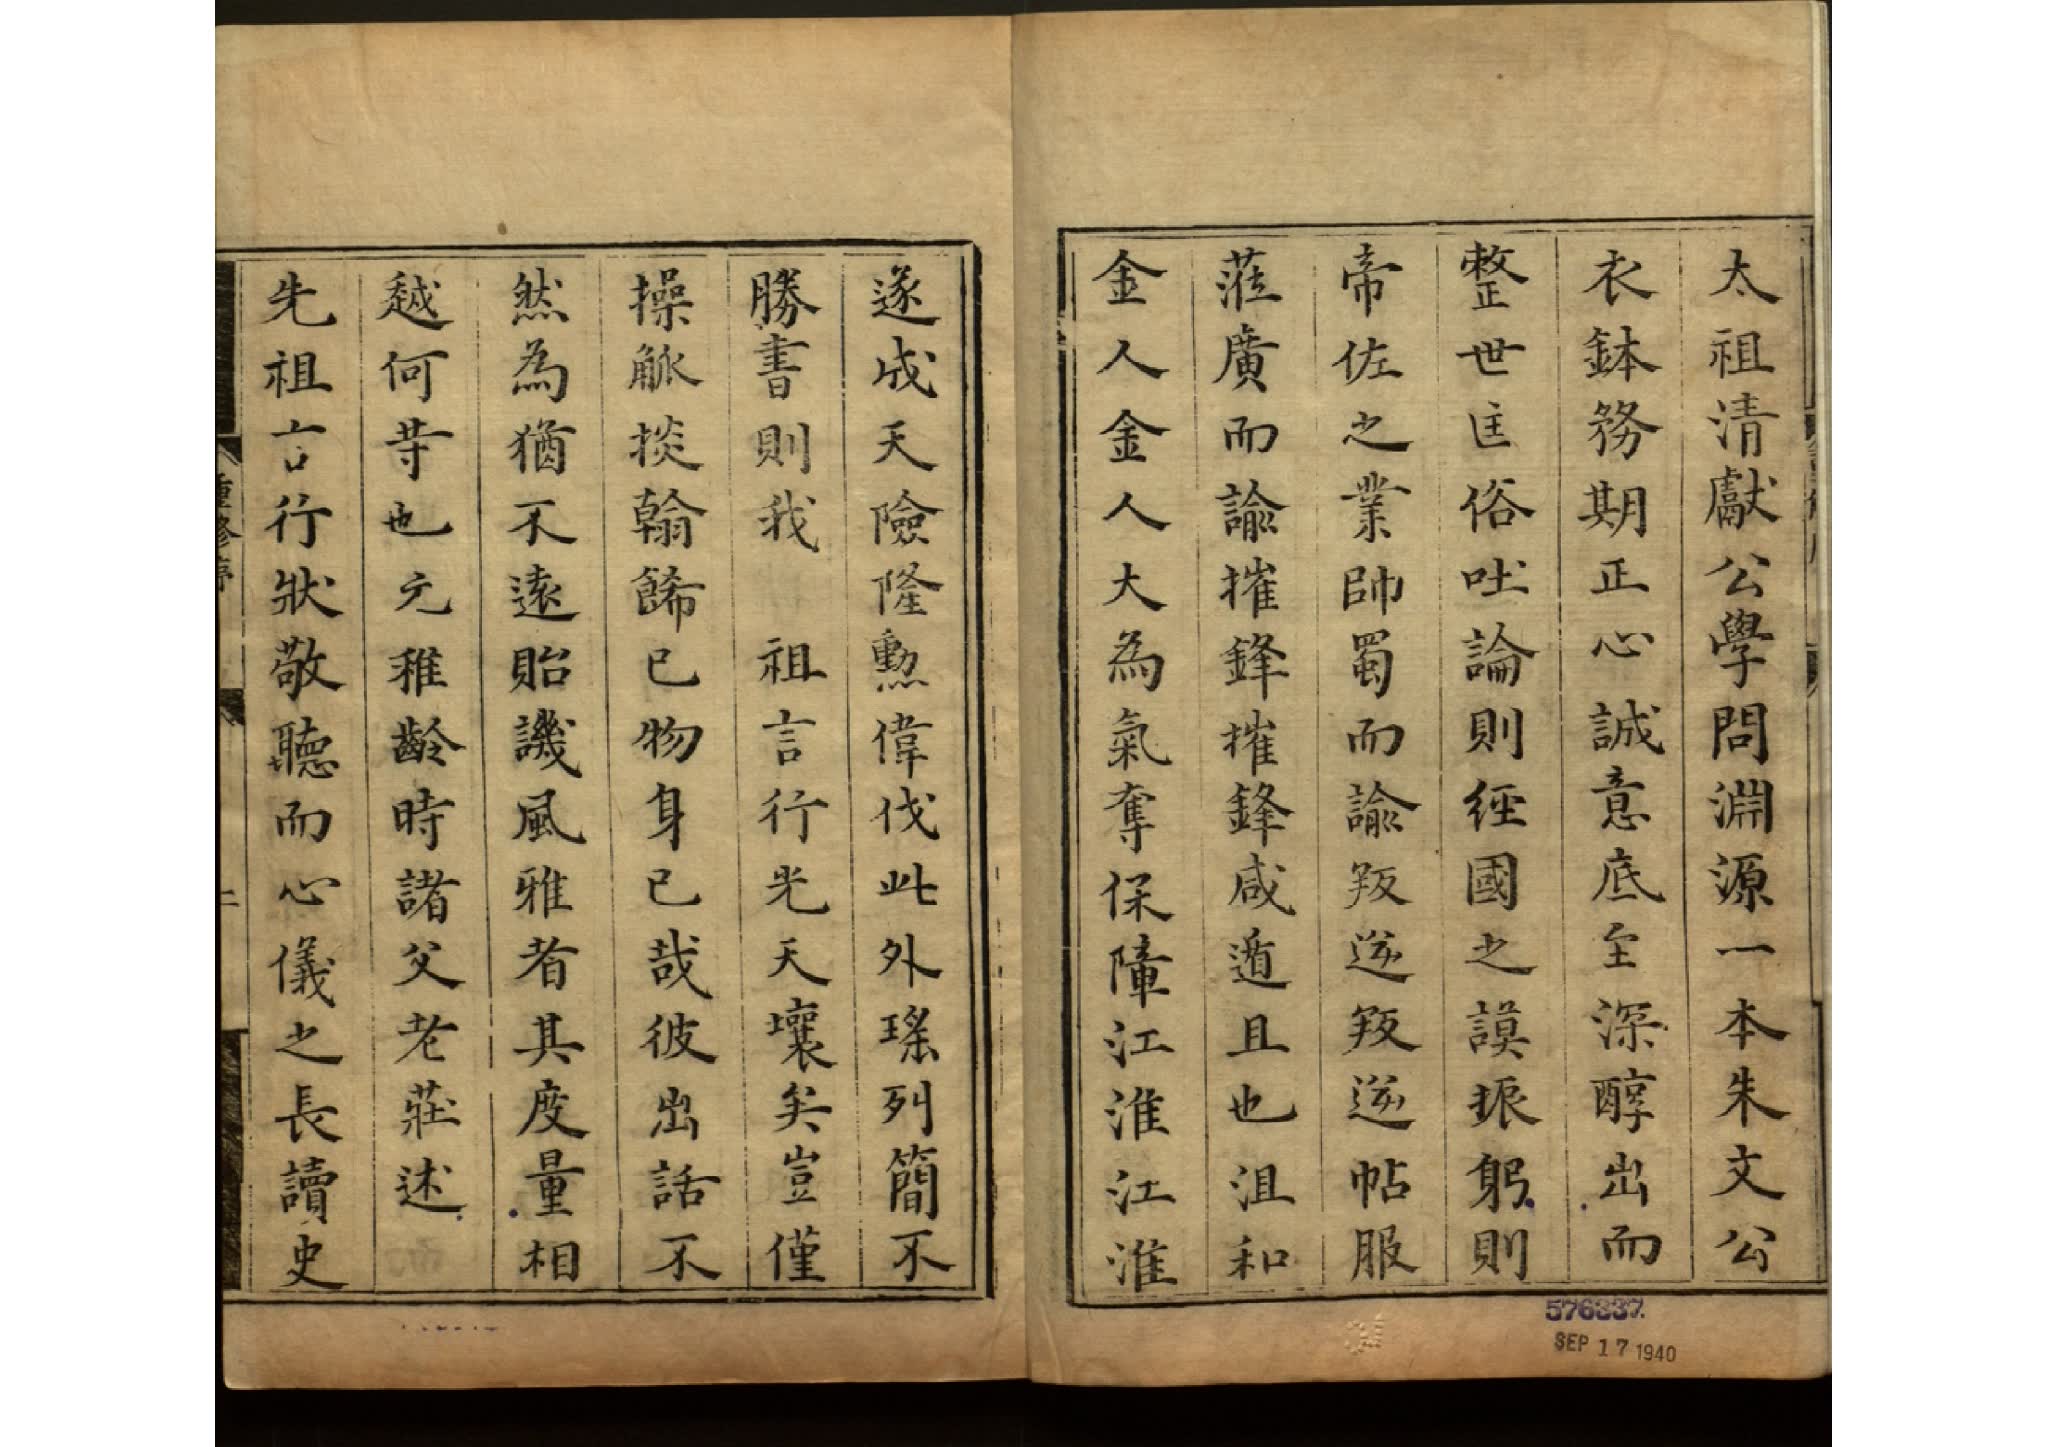 太祖清獻公學問淵源一本朱文公
衣鉢務期正心誠意底至深醇出而
整世匡俗吐論則經國之謨振躬則
帝佐之業帥蜀而諭叛逆叛逆帖服
蒞廣而諭摧鋒摧鋒咸遁且也沮和
金人金人大為氣奪保障江淮江淮
遂成天險隆勲偉伐此外瑤列簡不
勝書則我 祖言行光天壤矣豈僅
操觚掞翰餙已物身已哉彼出話不
然為猶不遠貽譏風雅者其度量相
越何等也元稚齡時諸父老莊述
先祖言行狀敬聽而心儀之長讀史
重修序
576337
SEP 17 1940